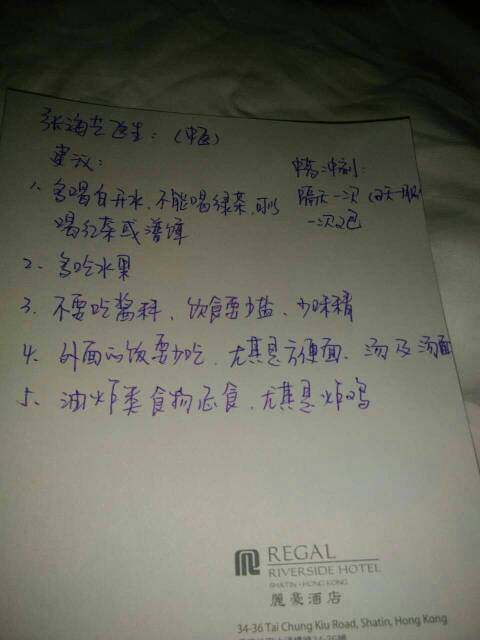 张海 医生：（中医）
建议：
1、多喝白开水，不能喝绿茶，可以
喝红茶或普洱
2、多吃水果
3、不要吃酱料，饮食要少盐，少味精
4、外面的饭要少吃，尤其是方便面、汤及汤面
5、油炸类食物忌食，尤其是炸鸡
中药冲剂：
隔天一次
一次2包
REGAL
RIVERSIDE HOTEL
SHATIN • HONG KONG
麗豪酒店
34-36 Tai Chung Kiu Road, Shatin, Hong Kong